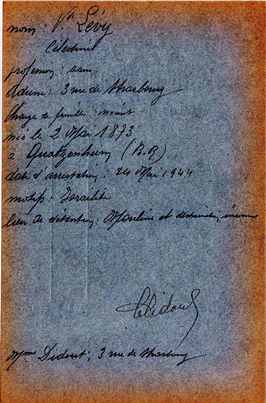 nom : Vve Lévy
Célestine
profession : sans
Adresse : 3 rue de Strasbourg
Charge de famille : néant
née le 2 Mai 1873
à Quatzenheim (B.R)
date d'arrestation : 24 Mai 1944
motif : Israélite
lieu de détention : Moulins et destination inconnue
Mme Didout, 3 rue de Strasbourg